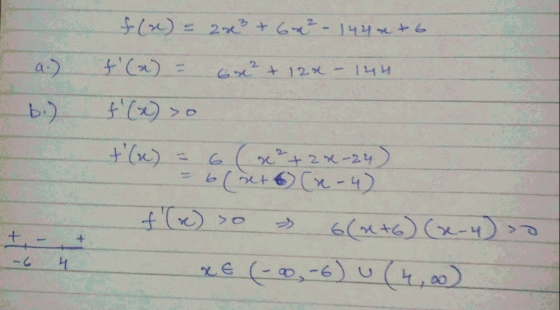 f(x) = 2x³ + 6x² - 144x + 6
a.) f'(x) = 6x² + 12x - 144
b.) f'(x) > 0
f'(x) = 6 (x² + 2x - 24)
= 6 (x + 6) (x - 4)
f'(x) > 0 ⇒ 6(x+6)(x-4) > 0
+ - +
-6 4
x ∈ (-∞, -6) ∪ (4, ∞)